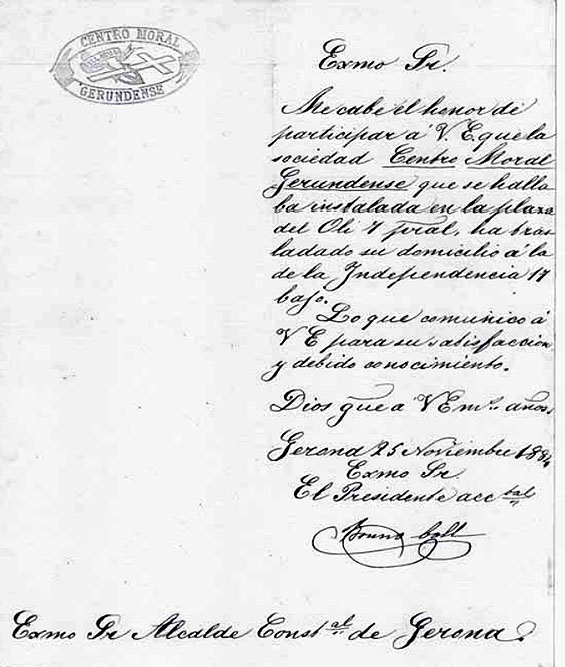 CENTRO MORAL
GERUNDENSE
Exmo Sr.
Me cabe el honor de
participar á V. E. que la
sociedad Centro Moral
Gerundense que se halla
ba instalada en la plaza
del Oli 7 pral, ha tras
ladado su domicilio á la
de la Independencia 17
bajo.
Lo que comunico á
V E para su satisfacción
y debido conocimiento.
Dios gue a V E m.s años.
Gerona 25 Noviembre 188
Exmo Sr.
El Presidente acctal
Bruno
Exmo Sr Alcalde Const.al de Gerona.